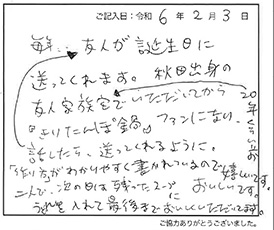 ご記入日:令和 6 年 2 月 3 日
毎年、友人が誕生日に
送ってくれます。秋田出身の
友人家族宅でいただいてから
20年くらい前
「きりたんぽ鍋」ファンになり、
話したら、送ってくれるように。
「作り方がわかりやすく書かれているので嬉しいです。
二人で、次の日は残ったスープに
うどんを入れて最後までおいしくいただいてます。
おいしいです。
ご協力ありがとうございました。